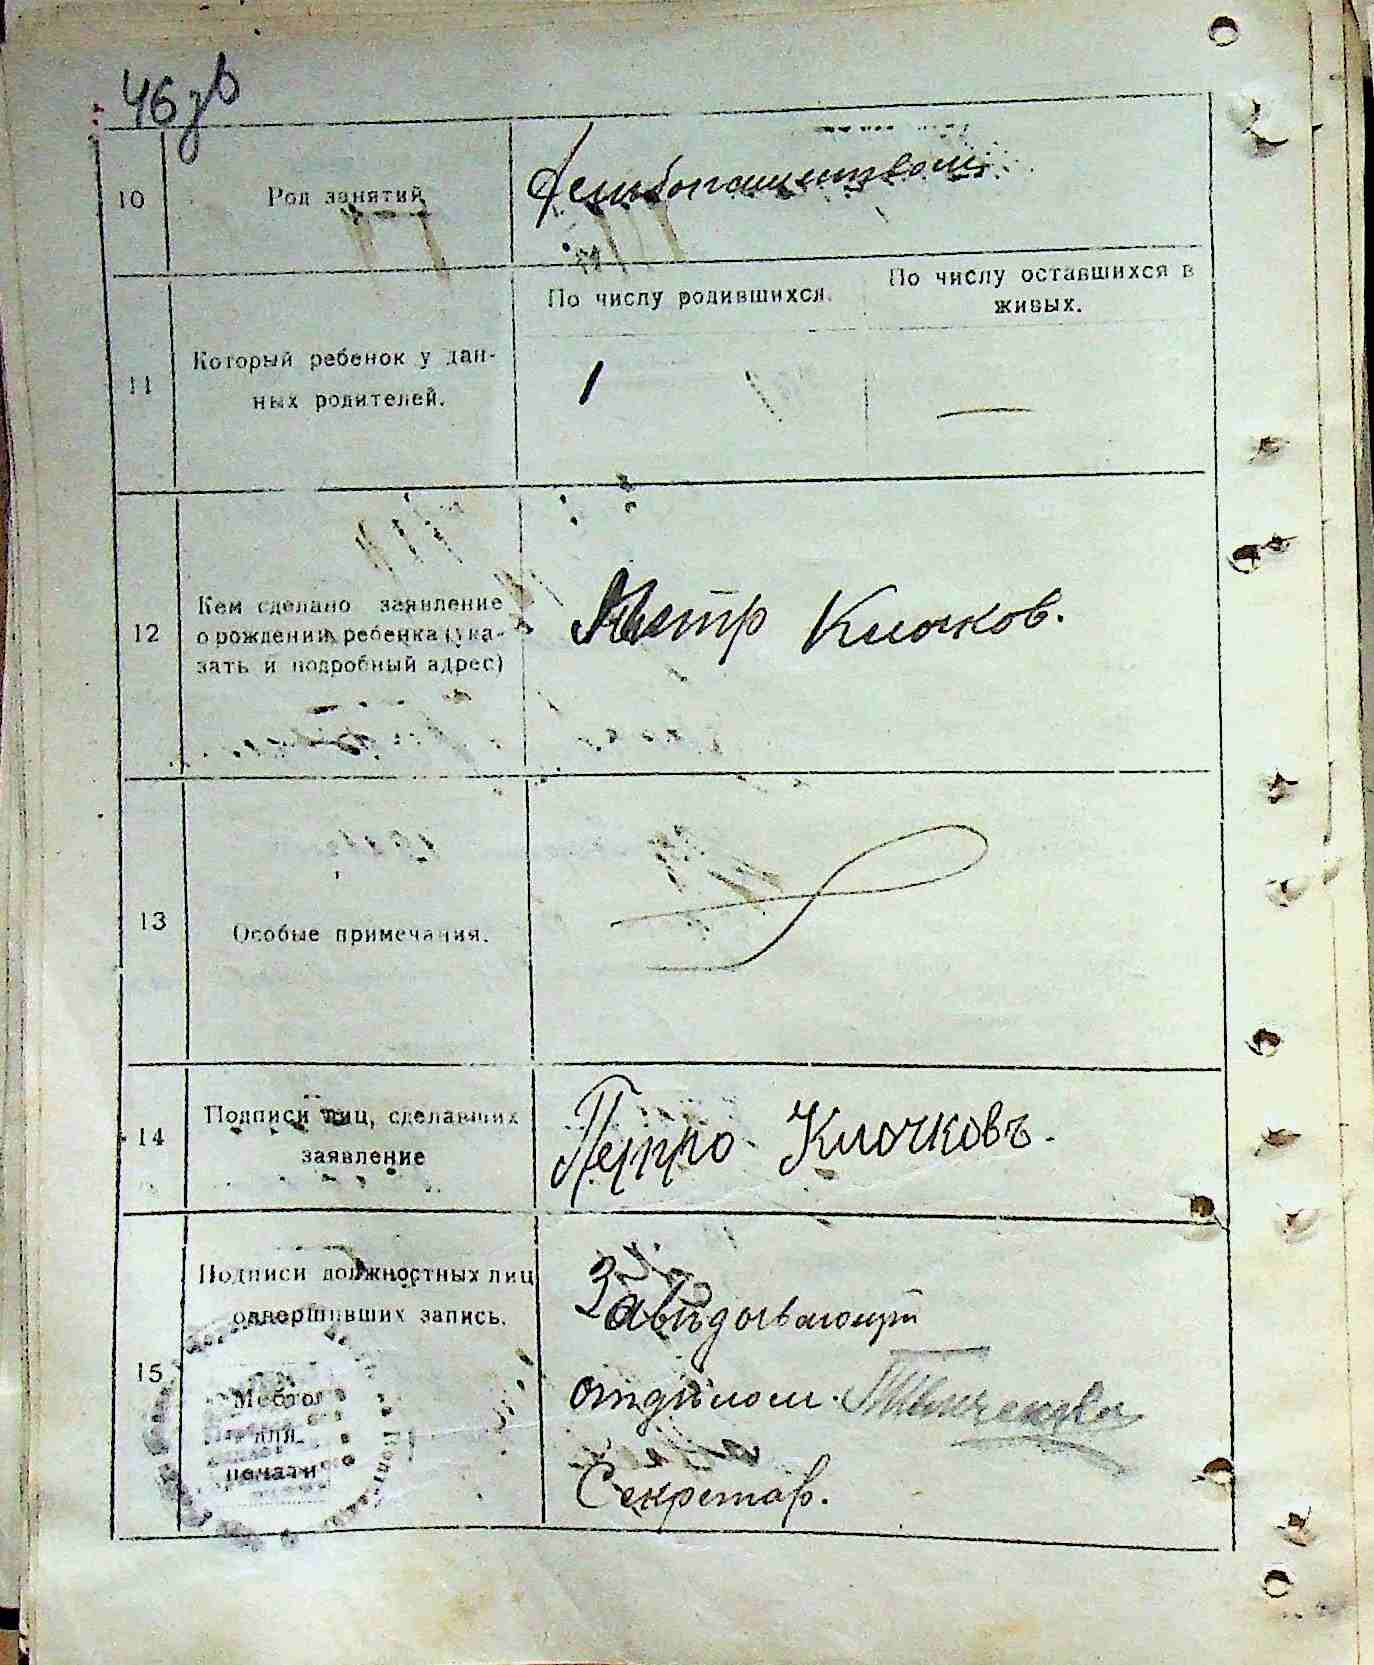 46 зв
10
Род занятий
11
Который ребенок у дан-
ных родителей.
По числу родившихся.
По числу оставшихся в
живых.
1
—
12
Кем сделано заявление
о рождении ребенка (ука-
зать и подробный адрес)
Петр Клочков.
13
Особые примечания.
14
Подписи лиц, сделавших
заявление
Петро Клочковъ.
15
Подписи должностных лиц
совершивших запись.
Место
для
печати
Завѣдывающий
отдѣлом.
Секретар.